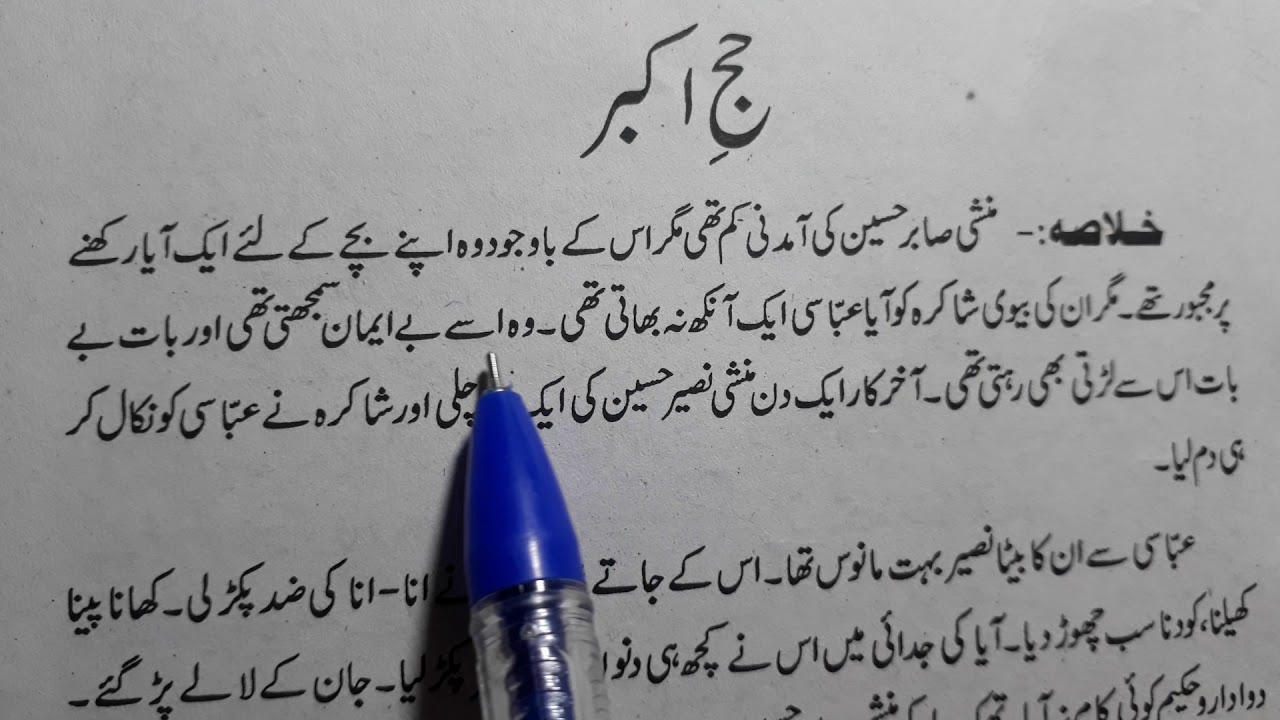 حجِ اکبر
خلاصہ:- منشی صابر حسین کی آمدنی کم تھی مگر اس کے باوجود وہ اپنے بچے کے لئے ایک آیا رکھنے
پر مجبور تھے۔ مگر ان کی بیوی شاکرہ کو آیا عبّاسی ایک آنکھ نہ بھاتی تھی۔ وہ اسے بے ایمان سمجھتی تھی اور بات بے
بات اس سے لڑتی بھی رہتی تھی۔ آخر کار ایک دن منشی نصیر حسین کی ایک چلی اور شاکرہ نے عبّاسی کو نکال کر
ہی دم لیا۔
عبّاسی سے ان کا بیٹا نصیر بہت مانوس تھا۔ اس کے جاتے نے انا-انا کی ضد پکڑ لی۔ کھانا پینا
کھیلنا، کودنا سب چھوڑ دیا۔ آیا کی جدائی میں اس نے کچھ ہی پکڑ لیا۔ جان کے لالے پڑ گئے۔
دوا دارو حکیم کوئی کام نہ آیا